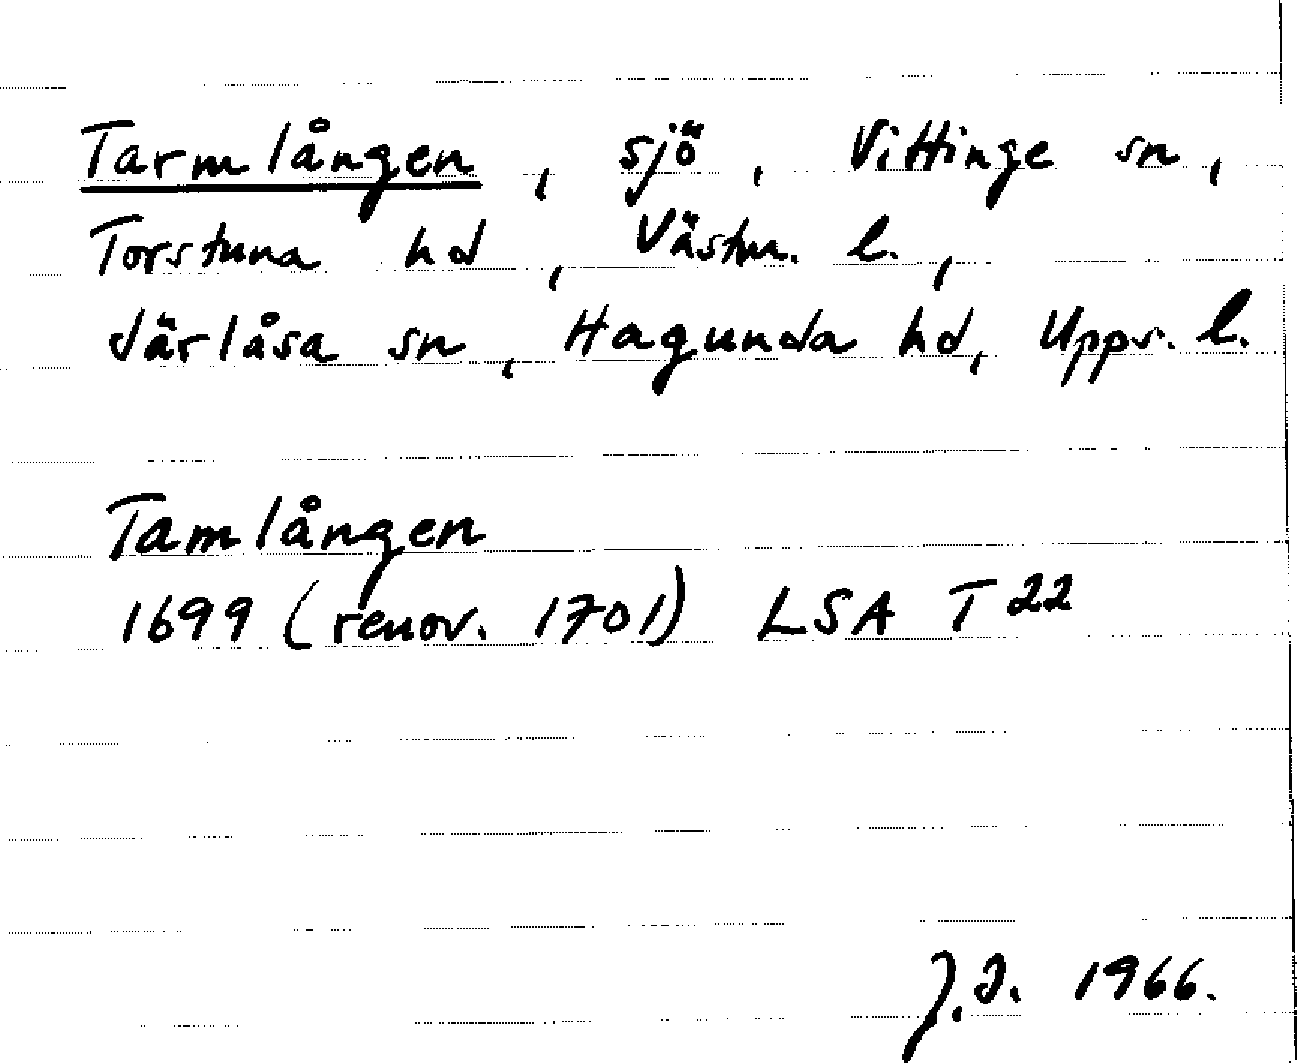 Tarmlången, sjö, Vittinge sn,
Torstuna hd, Västm. l.,
Järlåsa sn, Hagunda hd, Upps. l.
Tamlången
1699 (renov. 1701) LSA T 22
J.J. 1966.